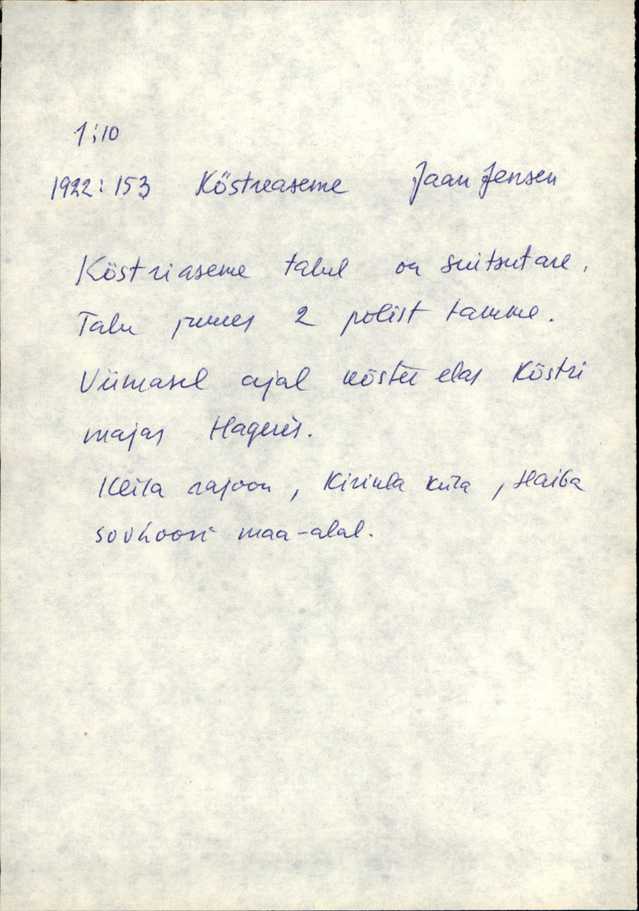 1:10
1922:153 Köstreaseme Jaan Jensen
Köstriaseme talul on suitsutare.
Talu juures 2 põlist tamme.
Viimasel ajal köster elas Köstri
majas Hageris.
Keila rajoon, Kirikla küla, Haiba
sovhoosi maa-alal.